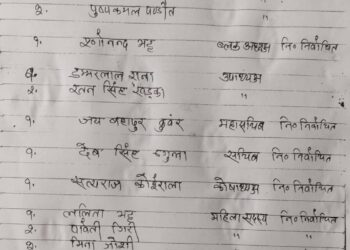 २. पुष्पकमल पण्डीत "
१. रुगानन्द भट्ट ब्लक अध्यक्ष नि० निर्वाचित
१. डम्मरलाल राना उपाध्यक्ष
२. रतन सिंह खड्का "
१. जय बहादुर कुवंर महासचिव नि० निर्वाचित
१. देब सिंह सचिव नि० निर्वाचित
१. सत्यराज कोईराला कोषाध्यक्ष नि० निर्वाचित
१. ललिता भट्ट महिला सदस्य नि० निर्वाचित
२. पार्वती गिरी "
३. मिना जोशी "